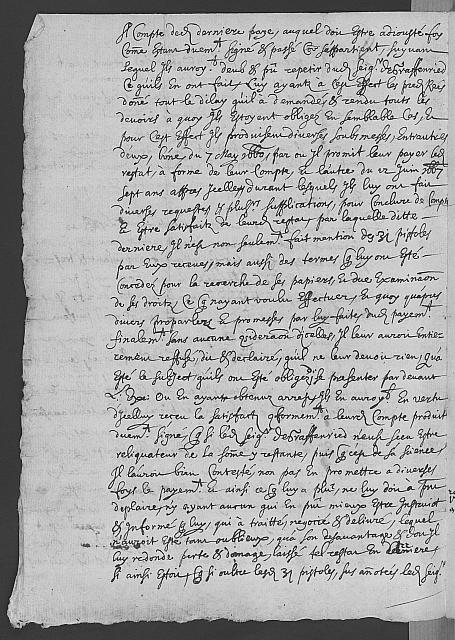 Il Compte dedt derniere paye, auquel doit estre adiousté foy
Côme estant duemt signé & passé Côe s'appartient, suyvant
lequel Ils auroyt deub & pû repetir dudt Seigr DeGraffenried
Ce quils en ont fait, Luy ayantz à Cest Effect les predts
doñé tout le dilay quil à demandé, & rendu touts les
devoirs a quoy Ils Estoyent obligez en semblable Cas, Et
pour C'est Effect Ils produisent diverses soubmesses, Entre autres
deux, L'une du 7 May 1660, par ou Il promit leur payer led
restat, à forme de leur Compte, Et l'autre du 12 Juin 1667
sept ans apres Jcelles durant lesquels Ils luy ont fait
diverses requestes & plusrs supplications, pour Conclure de Compte
& Estre satisfaits de leurd restat, par laquelle ditte
derniere, Il n'est non seulemt fait mention des 31 pistoles
par Eux receues, mais aussi des termes luy ont Esté
Concedés pour la recerche de ses papiers, Et due Examinaôn
de ses droitz, Ce nayant voulu Effectuer, Et quoy qu'apres
divers proparlers & promesses par luy faites dud payemt
finalemt sans aucune d'jcelles, Il leur auroit Entie-
rement reffusé, dit & declairé, qu'il ne leur devoit rien, Qu'a
Esté le subject, quils ont Esté obligez de se presenter par devant
V: Exce: Ou En ayantz obtenuz arrest, Ils En auroyt En vertu
d'Jcelluy receu la satisfact conformemt à leurd Compte produit
duemt signé, si led Seigr DeGraffenried n'eust sceu Estre
reliquateur de la sôme y restante, puis de sa Science
Il lauroit bien Contesté, non pas En promettre à diverses
foys le payemt, Et ainsi ce luy a plu, ne luy doit à pnt
deplaire, n'y ayant aucun qui En pût mieux Estre Instruict
& Informé luy, qui à traitté, negotié & delivré, lequel
n'auroit Esté tant oublieux, qu'à son desavantage & dont Il
luy redonde perte & domage, laissé tel restat En arriere,
Si ainsi Estoit, si oultre lesd 31 pistoles, sus añotés led Seigr